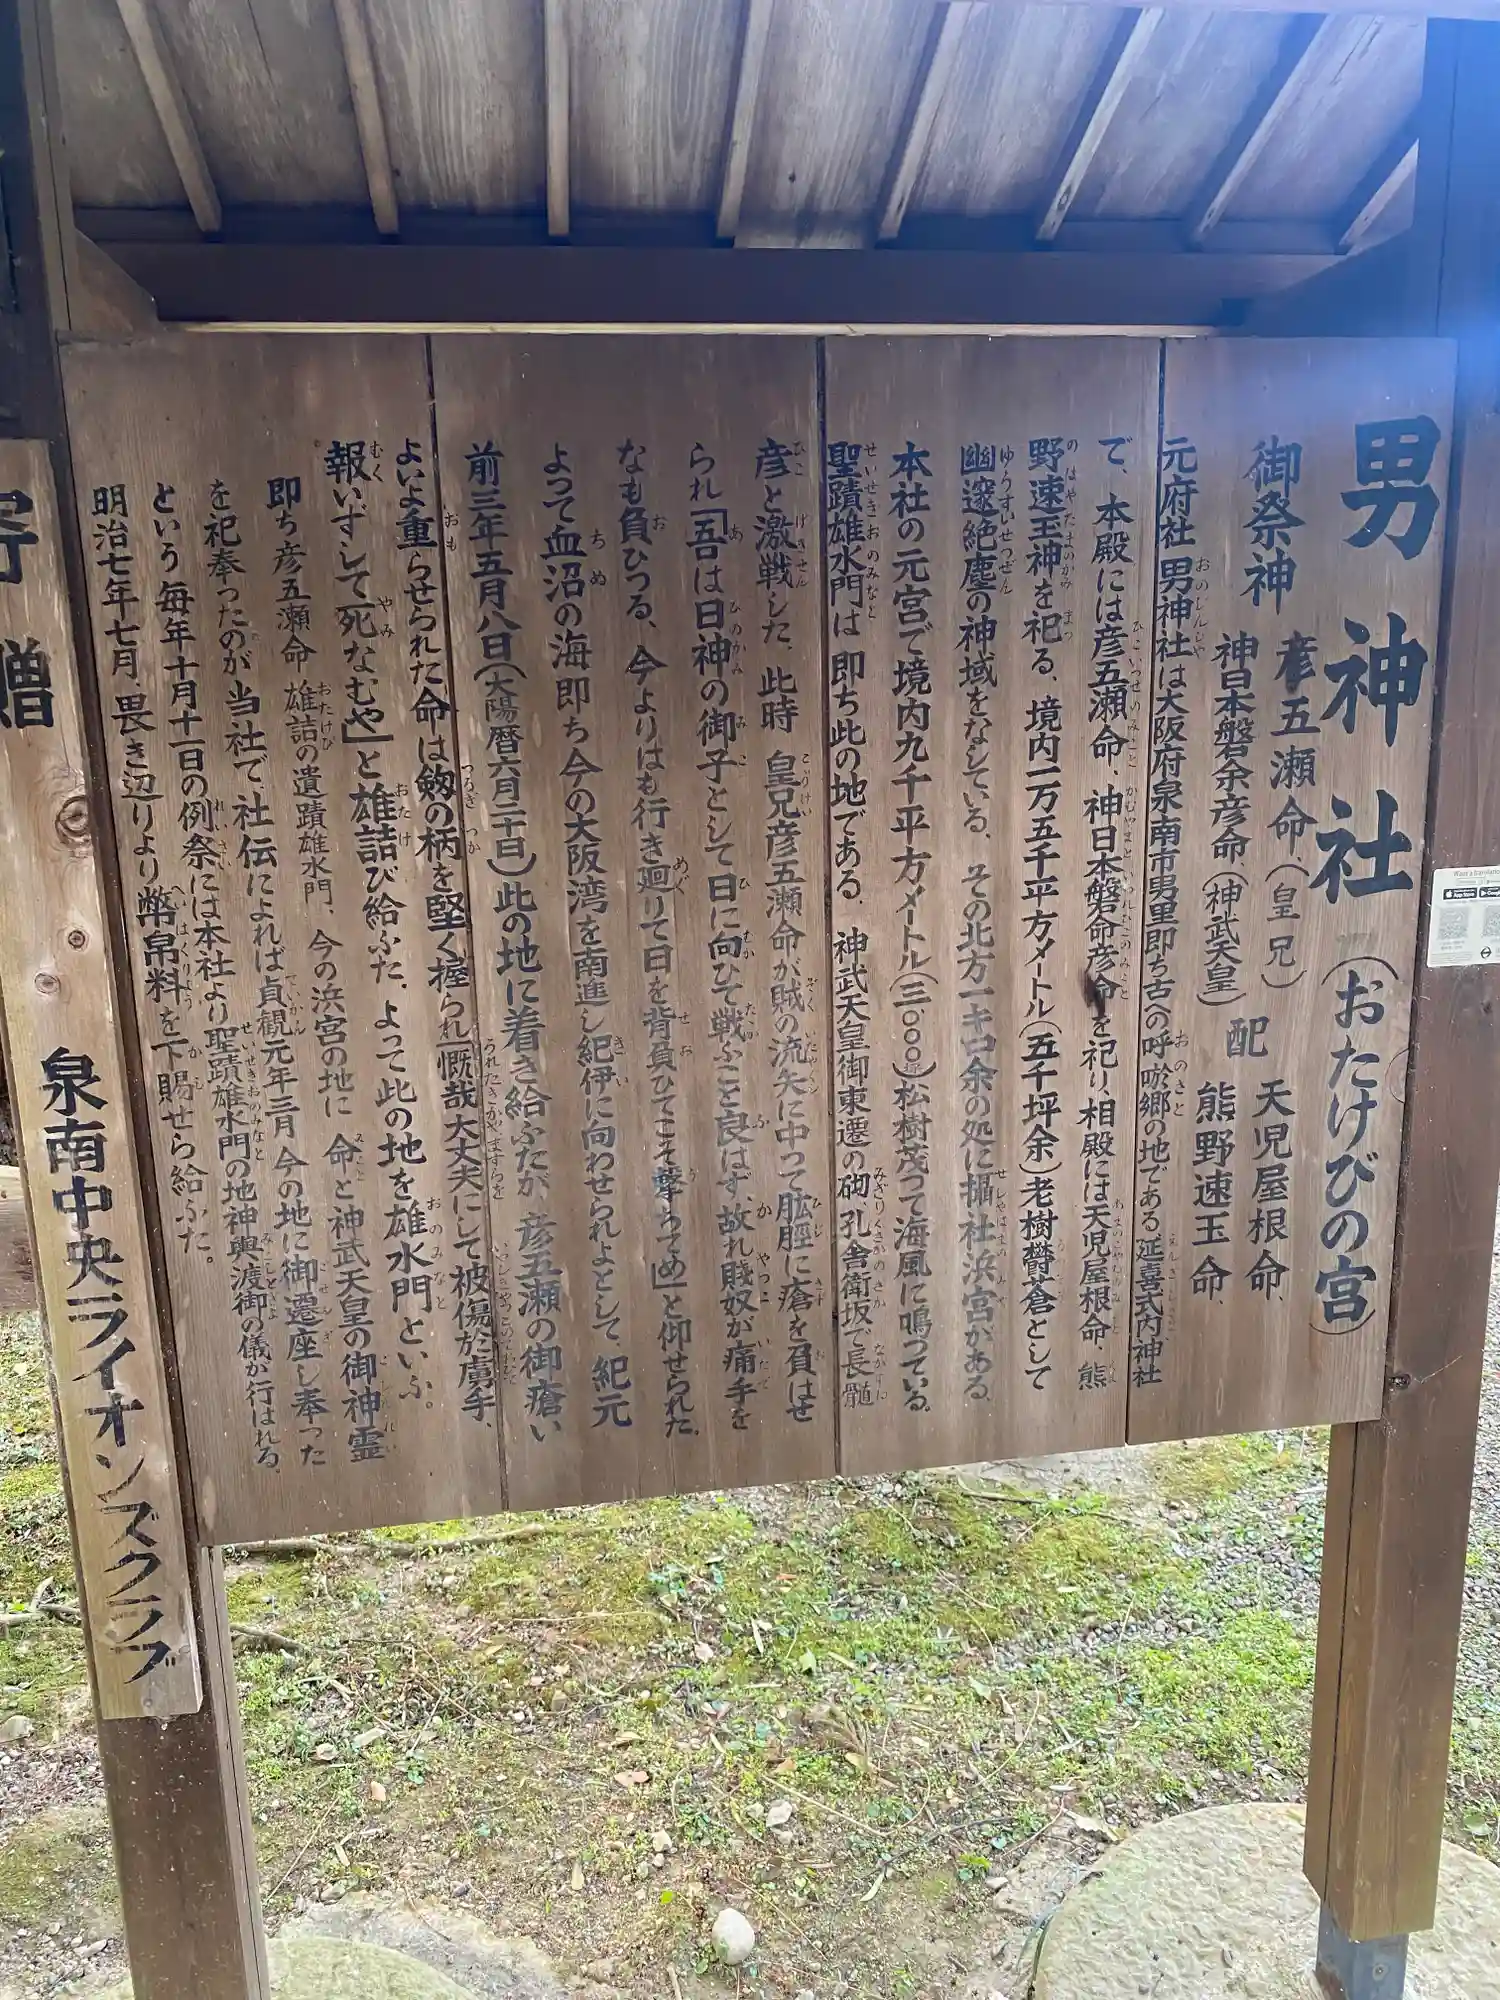 男神社(おたけびの宮)
御祭神 彦五瀬命、(皇兄) 神日本磐余彦命、(神武天皇) 配 天児屋根命、熊野速玉命、
元府社 男神社は大阪府泉南市男里即ち古への呼吹郷の地である 延喜式内神社
で、本殿には彦五瀬命、神日本磐命彦命を祀り、相殿には天児屋根命、熊
野速玉神を祀る、境内一万五千平方メートル(五千坪余)老樹欝蒼として
幽邃絶塵の神域をなしている、その北方一キロ余の処に攝社浜宮がある、
本社の元宮で境内九千平方メートル(三、〇〇〇坪)松樹茂って海風に鳴っている。
聖蹟雄水門は即ち此の地である、神武天皇御東遷の砌孔舎衛坂で長髄
彦と激戦した、此時 皇兄彦五瀬命が賊の流矢に中って肱脛に瘡を負はせ
られ「吾は日神の御子として日に向ひて戦ふこと良はず、故れ賤奴が痛手を
なも負ひつる、今よりはも行き廻りて日を背負ひてこそ撃ちてめ」と仰せられた、
よって血沼の海即ち今の大阪湾を南進し紀伊に向わせられよとして、紀元
前三年五月八日(太陽暦六月二十日)此の地に着き給ふたが、彦五瀬の御瘡い
よいよ重らせられた命は劔の柄を堅く握られ「慨哉大丈夫にして被傷於虜手、
報いずして死なむや」と雄詰び給ふた、よって此の地を雄水門といふ。
即ち彦五瀬命 雄詰の遺蹟雄水門、今の浜宮の地に 命と神武天皇の御神霊
を祀奉ったのが当社で、社伝によれば貞観元年三月 今の地に御遷座し奉った
という 毎年十月十一日の例祭には本社より聖蹟雄水門の地神輿渡御の儀が行はれる、
明治七年七月、畏き辺りより幣帛料を下賜せら給ふた。
寄贈 泉南中央ライオンズクラブ